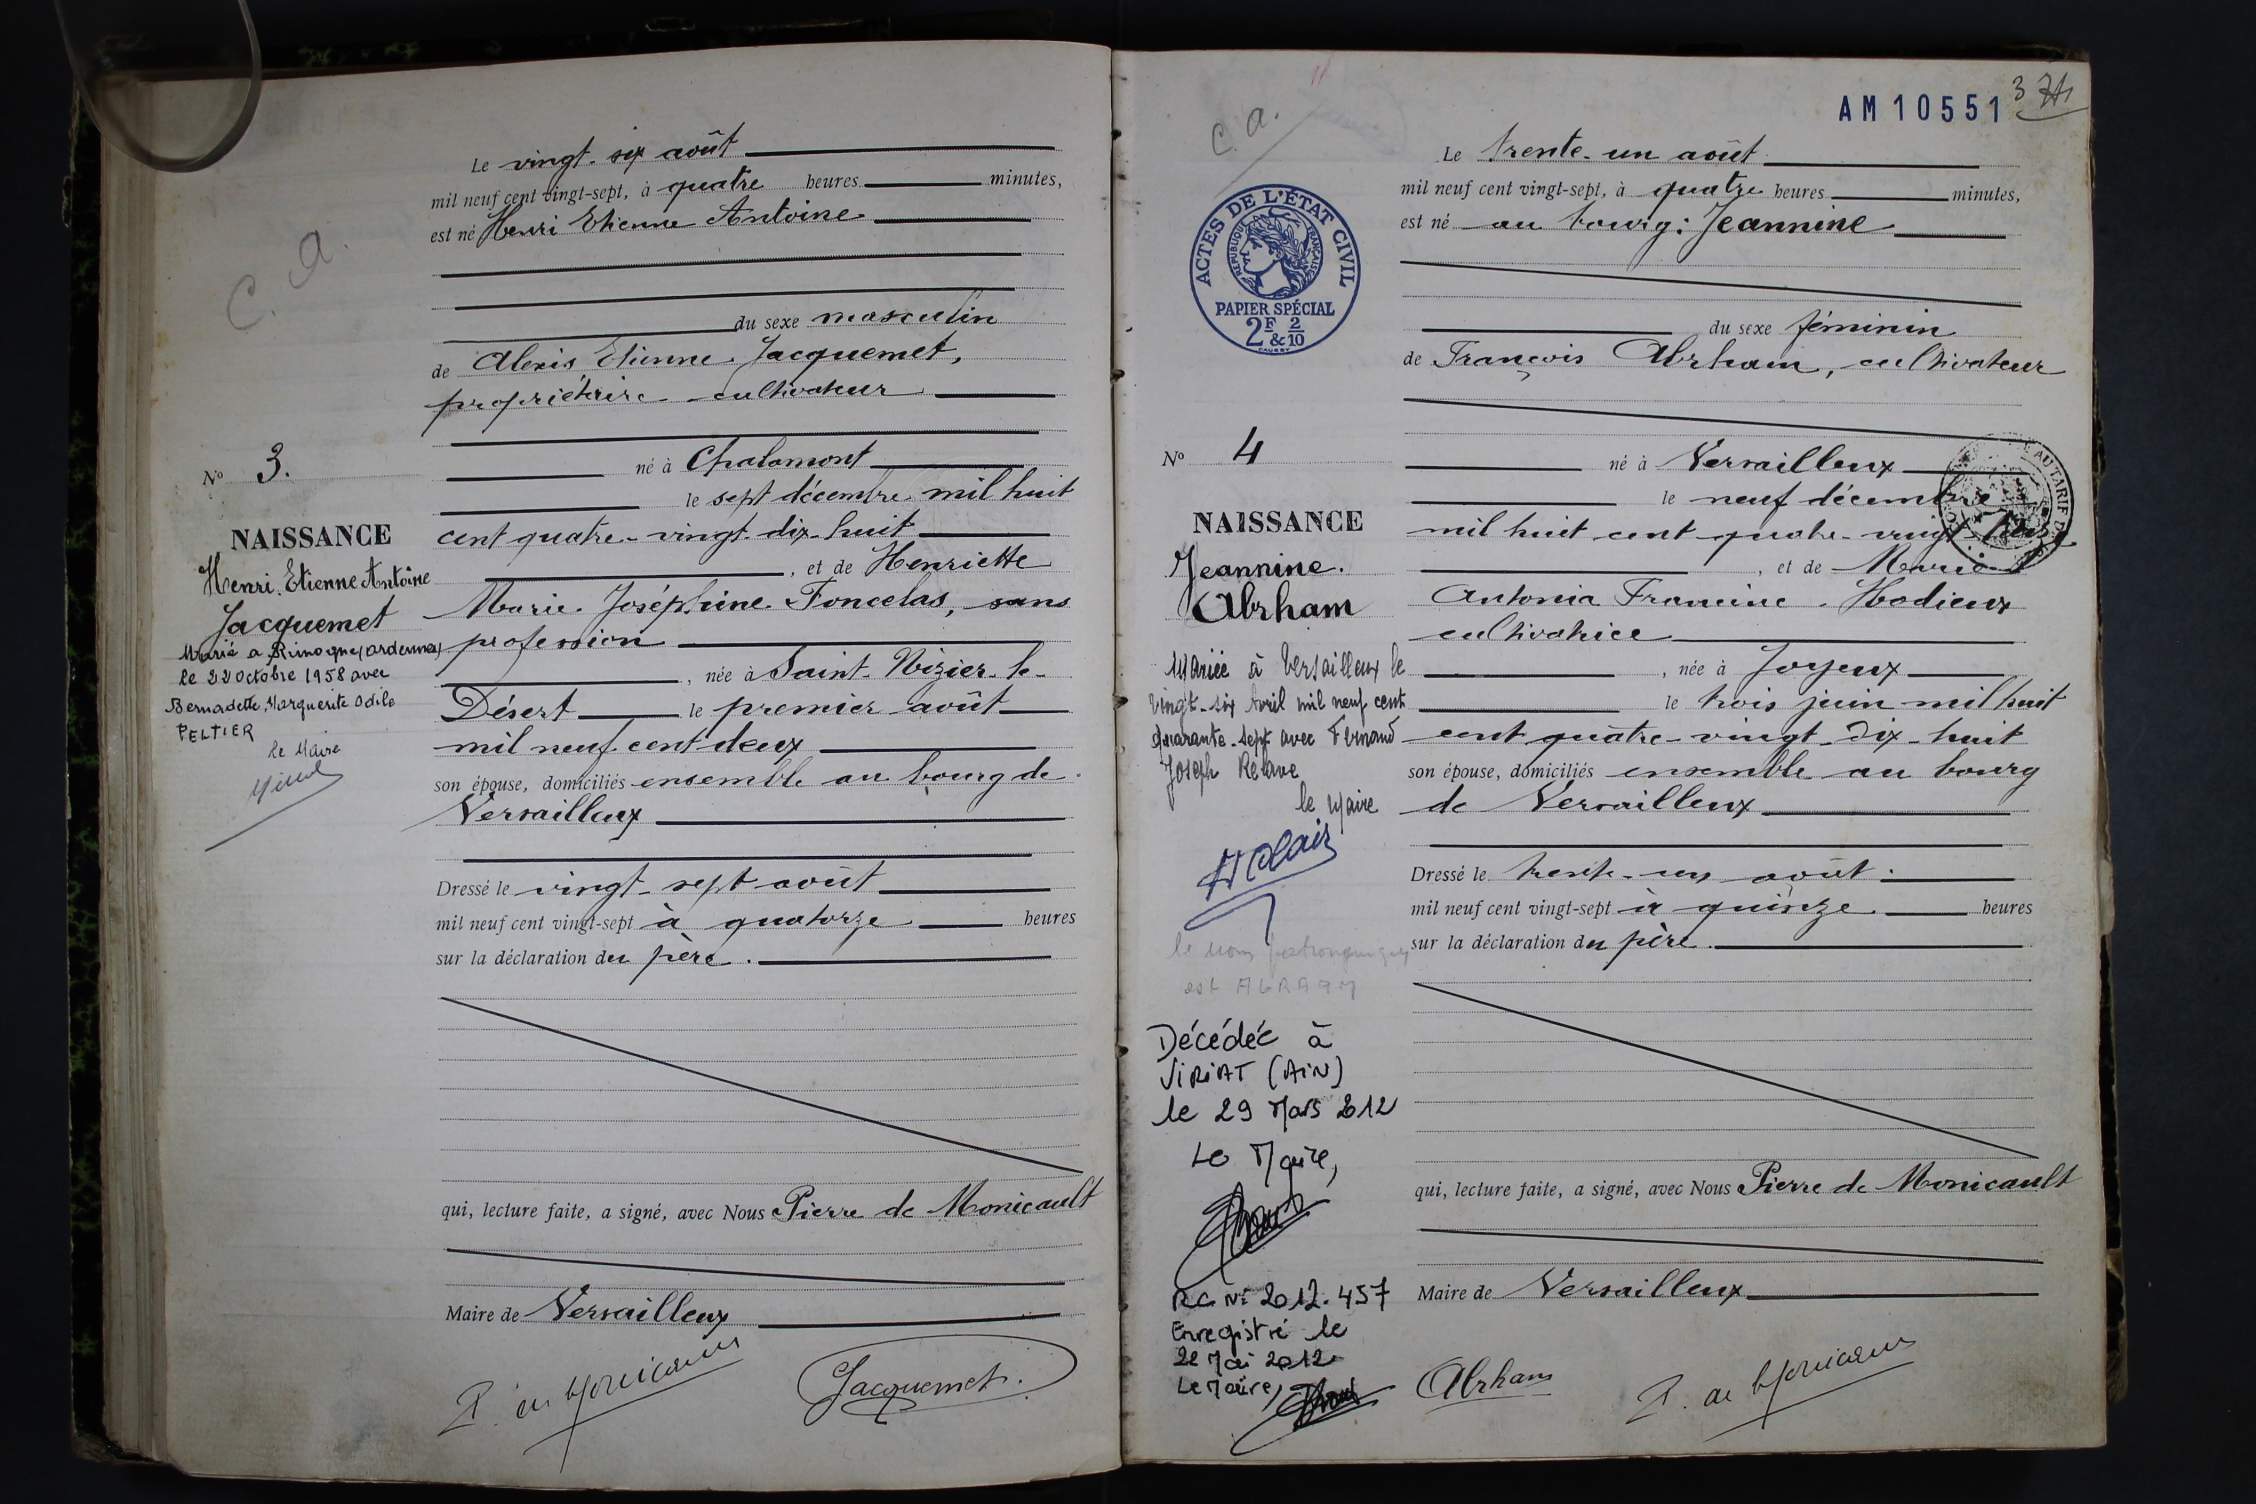 C. A.
Le vingt-six août
mil neuf cent vingt-sept, à quatre heures minutes,
est né Henri Etienne Antoine
du sexe masculin
de Alexis, Etienne Jacquemet,
propriétaire-cultivateur
né à Chalamont
le sept décembre mil huit
cent quatre-vingt-dix-huit
, et de Henriette
Marie Joséphine Foncelas, sans
profession
, née à Saint-Nizier-le-
Désert le premier août
mil neuf cent deux
son épouse, domiciliés ensemble au bourg de
Versailleux
Dressé le vingt-sept août
mil neuf cent vingt-sept à quatorze heures
sur la déclaration du père.
qui, lecture faite, a signé, avec Nous Pierre de Monicault
Maire de Versailleux
Jacquemet.
No 3.
NAISSANCE
Henri, Etienne Antoine
Jacquemet
Marié a Rimogne (ardennes)
le 22 octobre 1958 avec
Bernadette Marguerite Odile
PELTIER
le Maire
AM 10551
3
C. A.
ACTES DE L'ÉTAT CIVIL
RÉPUBLIQUE FRANÇAISE
PAPIER SPÉCIAL
2F & 2/10
Le trente-un août
mil neuf cent vingt-sept, à quatre heures minutes,
est né au bourg: Jeannine
du sexe féminin
de François Abrham, cultivateur
né à Versailleux
le neuf décembre
mil huit cent quatre-vingt
, et de Marie
Antonia Francine Hodieux
cultivatrice
, née à Joyeux
le trois juin mil huit
cent quatre-vingt-dix-huit
son épouse, domiciliés ensemble au bourg
de Versailleux
Dressé le trente-un août.
mil neuf cent vingt-sept à quinze heures
sur la déclaration du père.
qui, lecture faite, a signé, avec Nous Pierre de Monicault
Maire de Versailleux
Abrham
No 4
NAISSANCE
Jeannine.
Abrham
Mariée à Versailleux le
vingt-six Avril mil neuf cent
quarante-sept avec Fernand
Joseph Relave
le Maire
le nom patronymique
est ABRAHAM
Décédée à
VIRIAT (AIN)
le 29 Mars 2012
Le Maire,
RC N° 2012.457
Enregistré le
22 Mai 2012
Le Maire,